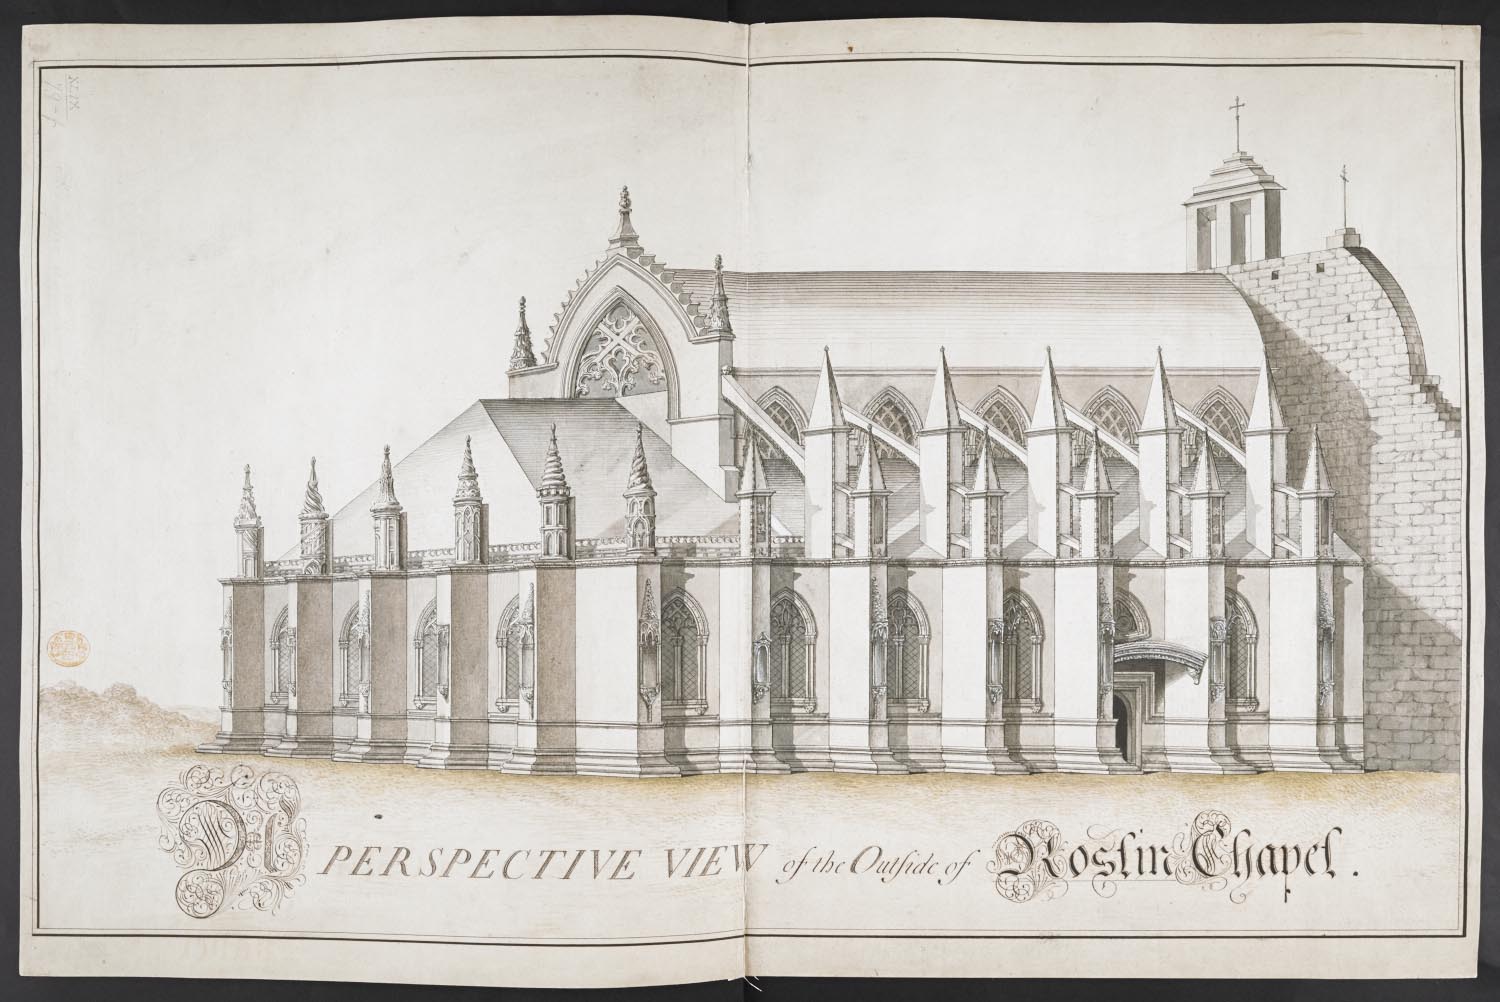 XLIX
A PERSPECTIVE VIEW of the Outſide of Roslin Chapel.